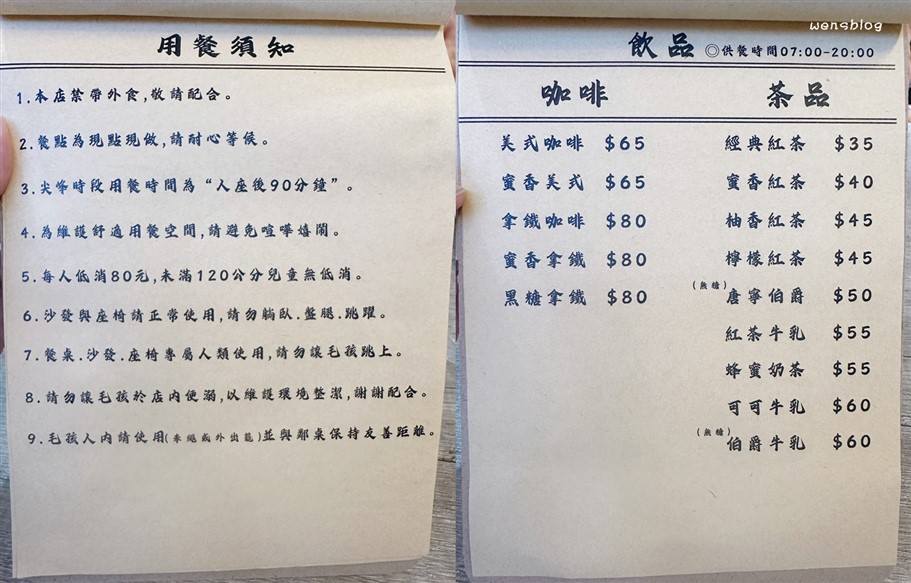 用餐須知
1.本店禁帶外食,敬請配合。
2.餐點為現點現做,請耐心等候。
3.尖峰時段用餐時間為“人座後90分鐘”。
4.為維護舒適用餐空間,請避免喧嘩嬉鬧。
5.每人低消80元,未滿120公分兒童無低消。
6.沙發與座椅請正常使用,請勿躺臥.盤腿.跳躍。
7.餐桌.沙發.座椅專屬人類使用,請勿讓毛孩跳上。
8.請勿讓毛孩於店內便溺,以維護環境整潔,謝謝配合。
9.毛孩人內請使用(牽繩或外出籠)並與鄰桌保持友善距離。
wensblog
飲品 ◎供餐時間07:00-20:00
咖啡
美式咖啡 $65
蜜香美式 $65
拿鐵咖啡 $80
蜜香拿鐵 $80
黑糖拿鐵 $80
茶品
經典紅茶 $35
蜜香紅茶 $40
柚香紅茶 $45
檸檬紅茶 $45
(無糖)唐寧伯爵 $50
紅茶牛乳 $55
蜂蜜奶茶 $55
可可牛乳 $60
(無糖)伯爵牛乳 $60